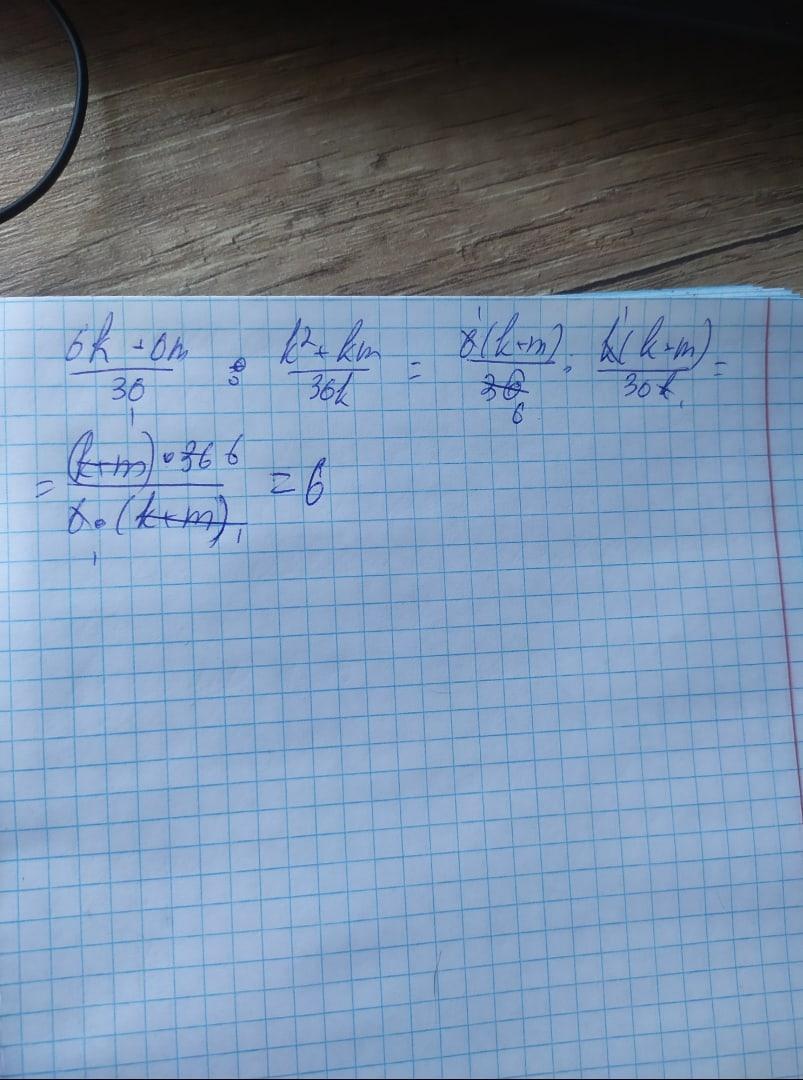 (6k + 6m)/36 : (k² + km)/36k = 6(k+m)/36 : k(k+m)/36k =
= (k+m) · 36 6 / 6 · (k+m) = 6